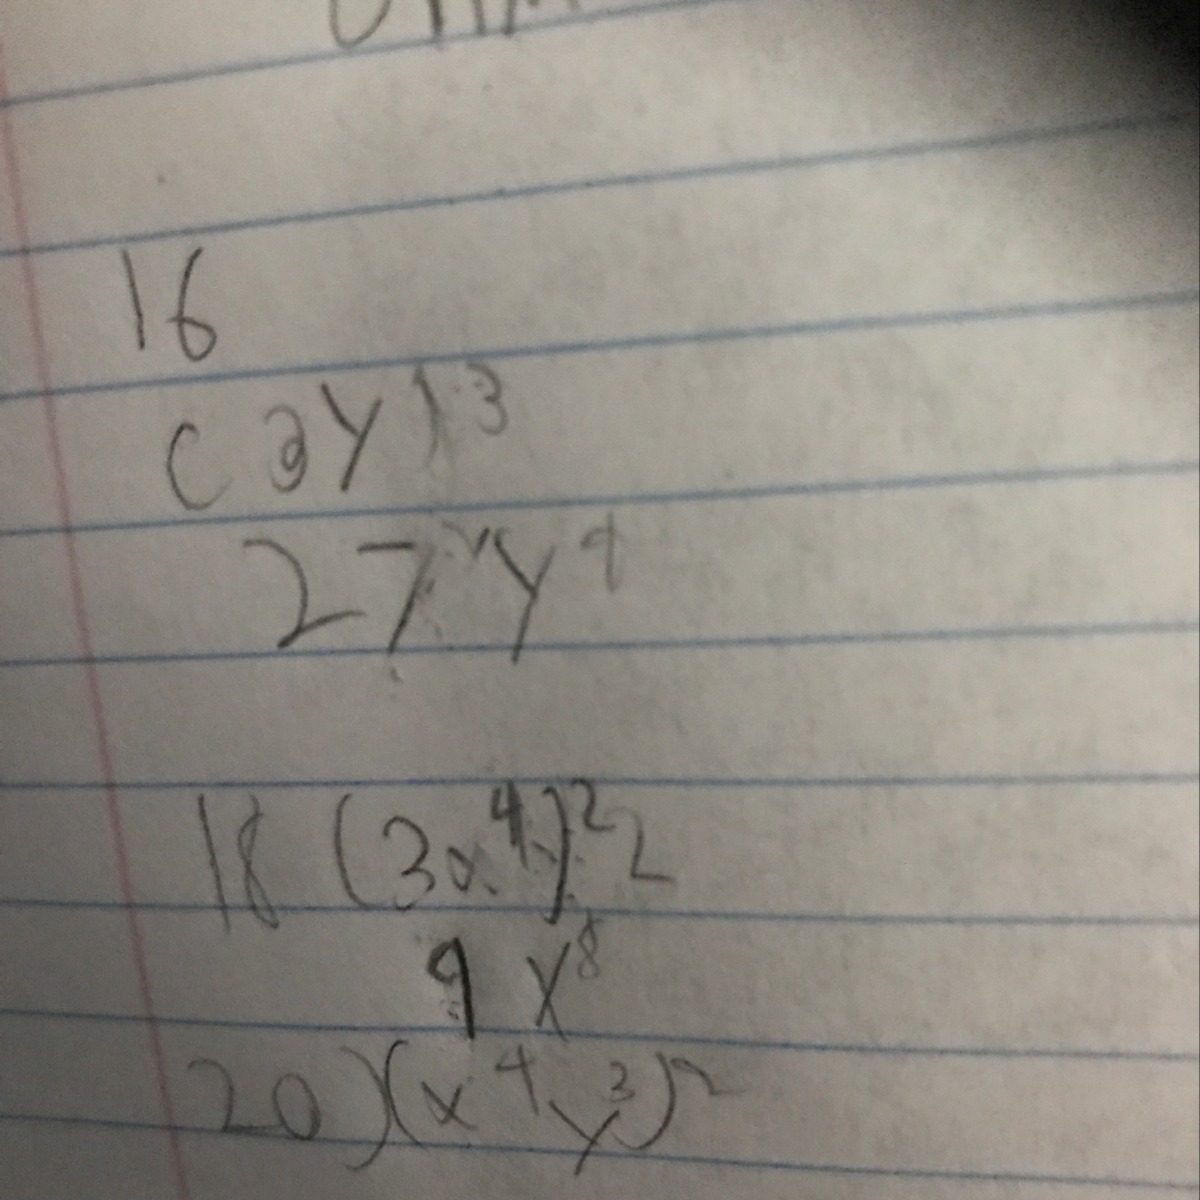 16
( 2y)3
27 y4
18 (3x⁴)² 2
9 x⁸
20)(x⁴y³)²